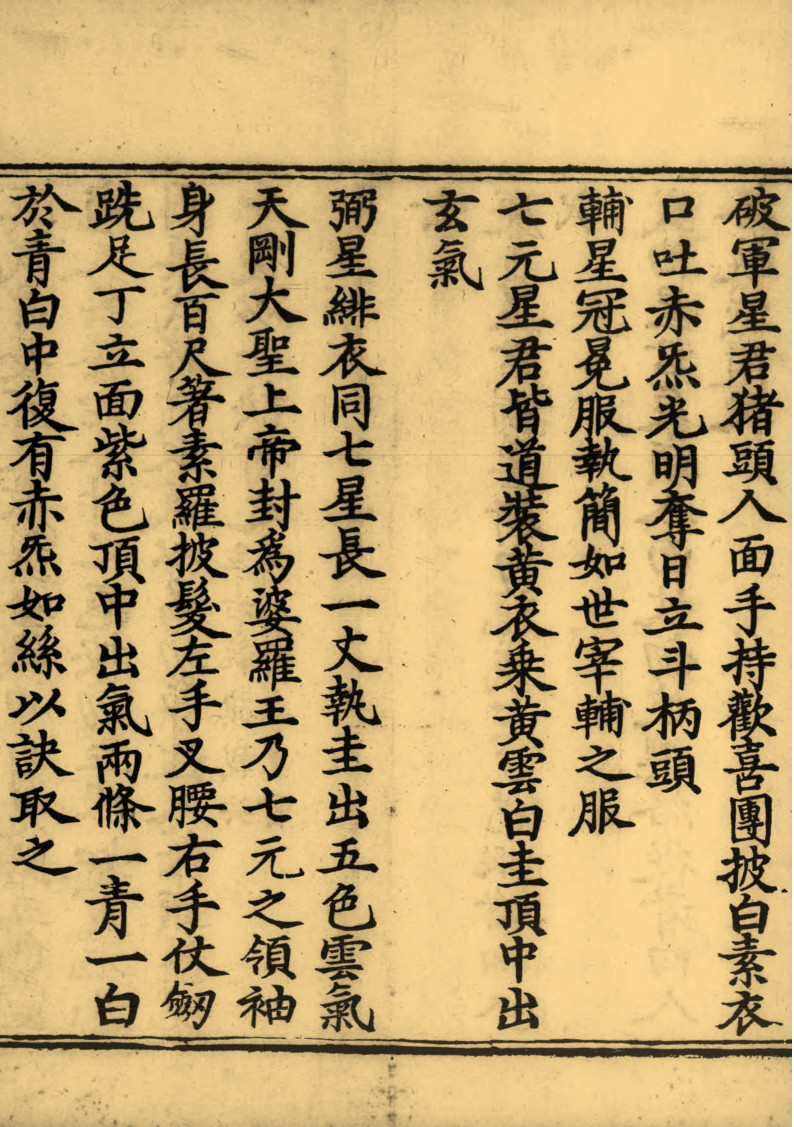 破軍星君猪頭人面手持歡喜團披白素衣
口吐赤炁光明奪日立斗柄頭
輔星冠冕服執簡如世宰輔之服
七元星君皆道裝黃衣乘黃雲白圭頂中出
玄氣
弼星緋衣同七星長一丈執圭出五色雲氣
天剛大聖上帝封爲婆羅王乃七元之領袖
身長百尺著素羅披髮左手叉腰右手仗劒
跣足丁立面紫色頂中出氣兩條一青一白
於青白中復有赤炁如絲以訣取之